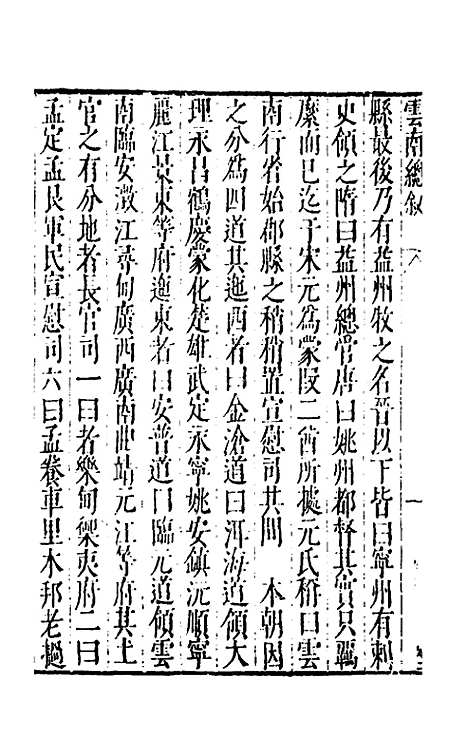 雲南總敘 八 一
縣最後乃有益州牧之名晉以下皆曰寧州有刺
史領之隋曰益州總管唐曰姚州都督其實只羈
縻而已迄于宋元為蒙段二酋所據元氏稱曰雲
南行省始郡縣之稍稍置宣慰司其間 本朝因
之分為四道其迤西者曰金滄道曰洱海道領大
理永昌鶴慶蒙化楚雄武定永寧姚安鎮沅順寧
麗江景東等府迤東者曰安普道曰臨元道領雲
南臨安澂江尋甸廣西廣南曲靖元江等府其土
官之有分地者長官司一曰者樂甸禦夷府二曰
孟定孟艮軍民宣慰司六曰孟養車里木邦老撾